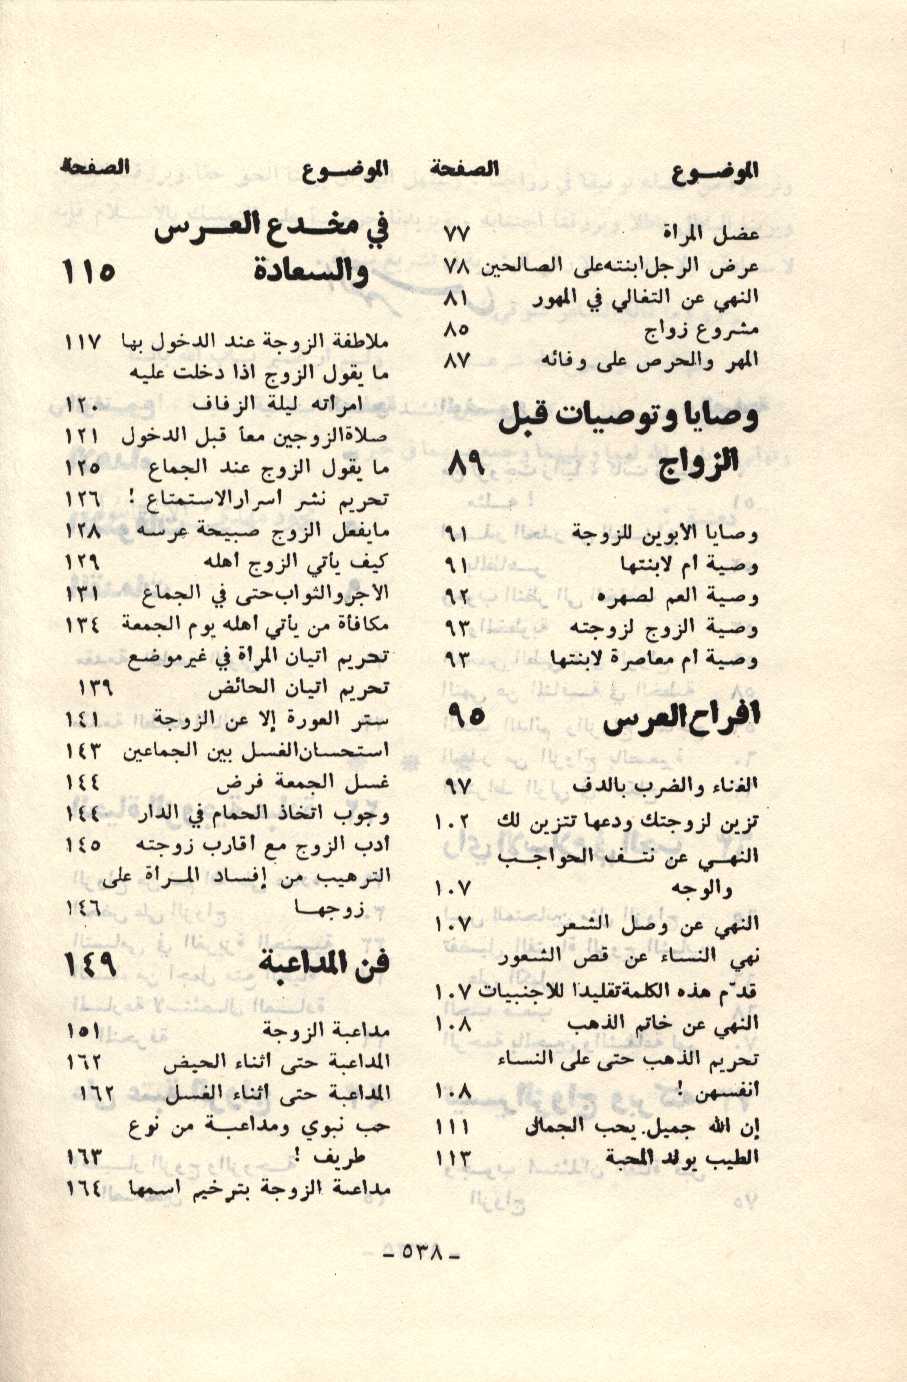 الموضــوع الصفحة
عضل المراة ٧٧
عرض الرجل ابنته على الصالحين ٧٨
النهي عن التغالي في المهور ٨١
مشروع زواج ٨٥
المهر والحرص على وفائه ٨٧
وصايا وتوصيات قبل
الزواج ٨٩
وصايا الأبوين للزوجة ٩١
وصية أم لابنتها ٩١
وصية العم لصهره ٩٢
وصية الزوج لزوجته ٩٣
وصية أم معاصرة لابنتها ٩٣
افراح العرس ٩٥
الغناء والضرب بالدف ٩٧
تزين لزوجتك ودعها تتزين لك ١٠٢
النهــي عن نتــف الحواجــب
والوجه ١٠٧
النهي عن وصل الشعر ١٠٧
نهي النساء عن قص الشعور
قدّم هذه الكلمة تقليدا للاجنبيات ١٠٧
النهي عن خاتم الذهب ١٠٨
تحريم الذهب حتى على النساء
انفسهن ! ١٠٨
إن الله جميل. يحب الجمال ١١١
الطيب يولد المحبة ١١٣
الموضــوع الصفحة
في مخــدع العــرس
والسعادة ١١٥
ملاطفة الزوجة عند الدخول بها ١١٧
ما يقول الزوج اذا دخلت عليه
امراته ليلة الزفاف ١٢٠
صلاة الزوجين معاً قبل الدخول ١٢١
ما يقول الزوج عند الجماع ١٢٥
تحريم نشر اسرار الاستمتاع ! ١٢٦
مايفعل الزوج صبيحة عرسه ١٢٨
كيف يأتي الزوج أهله ١٢٩
الاجر والثواب حتى في الجماع ١٣١
مكافأة من يأتي أهله يوم الجمعة ١٣٤
تحريم اتيان المرأة في غير موضع
تحريم اتيان الحائض ١٣٩
ستر العورة إلا عن الزوجة ١٤١
استحسان الغسل بين الجماعين ١٤٣
غسل الجمعة فرض ١٤٤
وجوب اتخاذ الحمام في الدار ١٤٤
أدب الزوج مع أقارب زوجته ١٤٥
الترهيب من إفساد المــرأة على
زوجهــا ١٤٦
فن المداعبة ١٤٩
مداعبة الزوجة ١٥١
المداعبة حتى أثناء الحيض ١٦٢
المداعبة حتى أثناء الغسل ١٦٢
حب نبوي ومداعبــة من نوع
طريف ! ١٦٣
مداعبة الزوجة بترخيم اسمها ١٦٤
ـ ٥٣٨ ـ